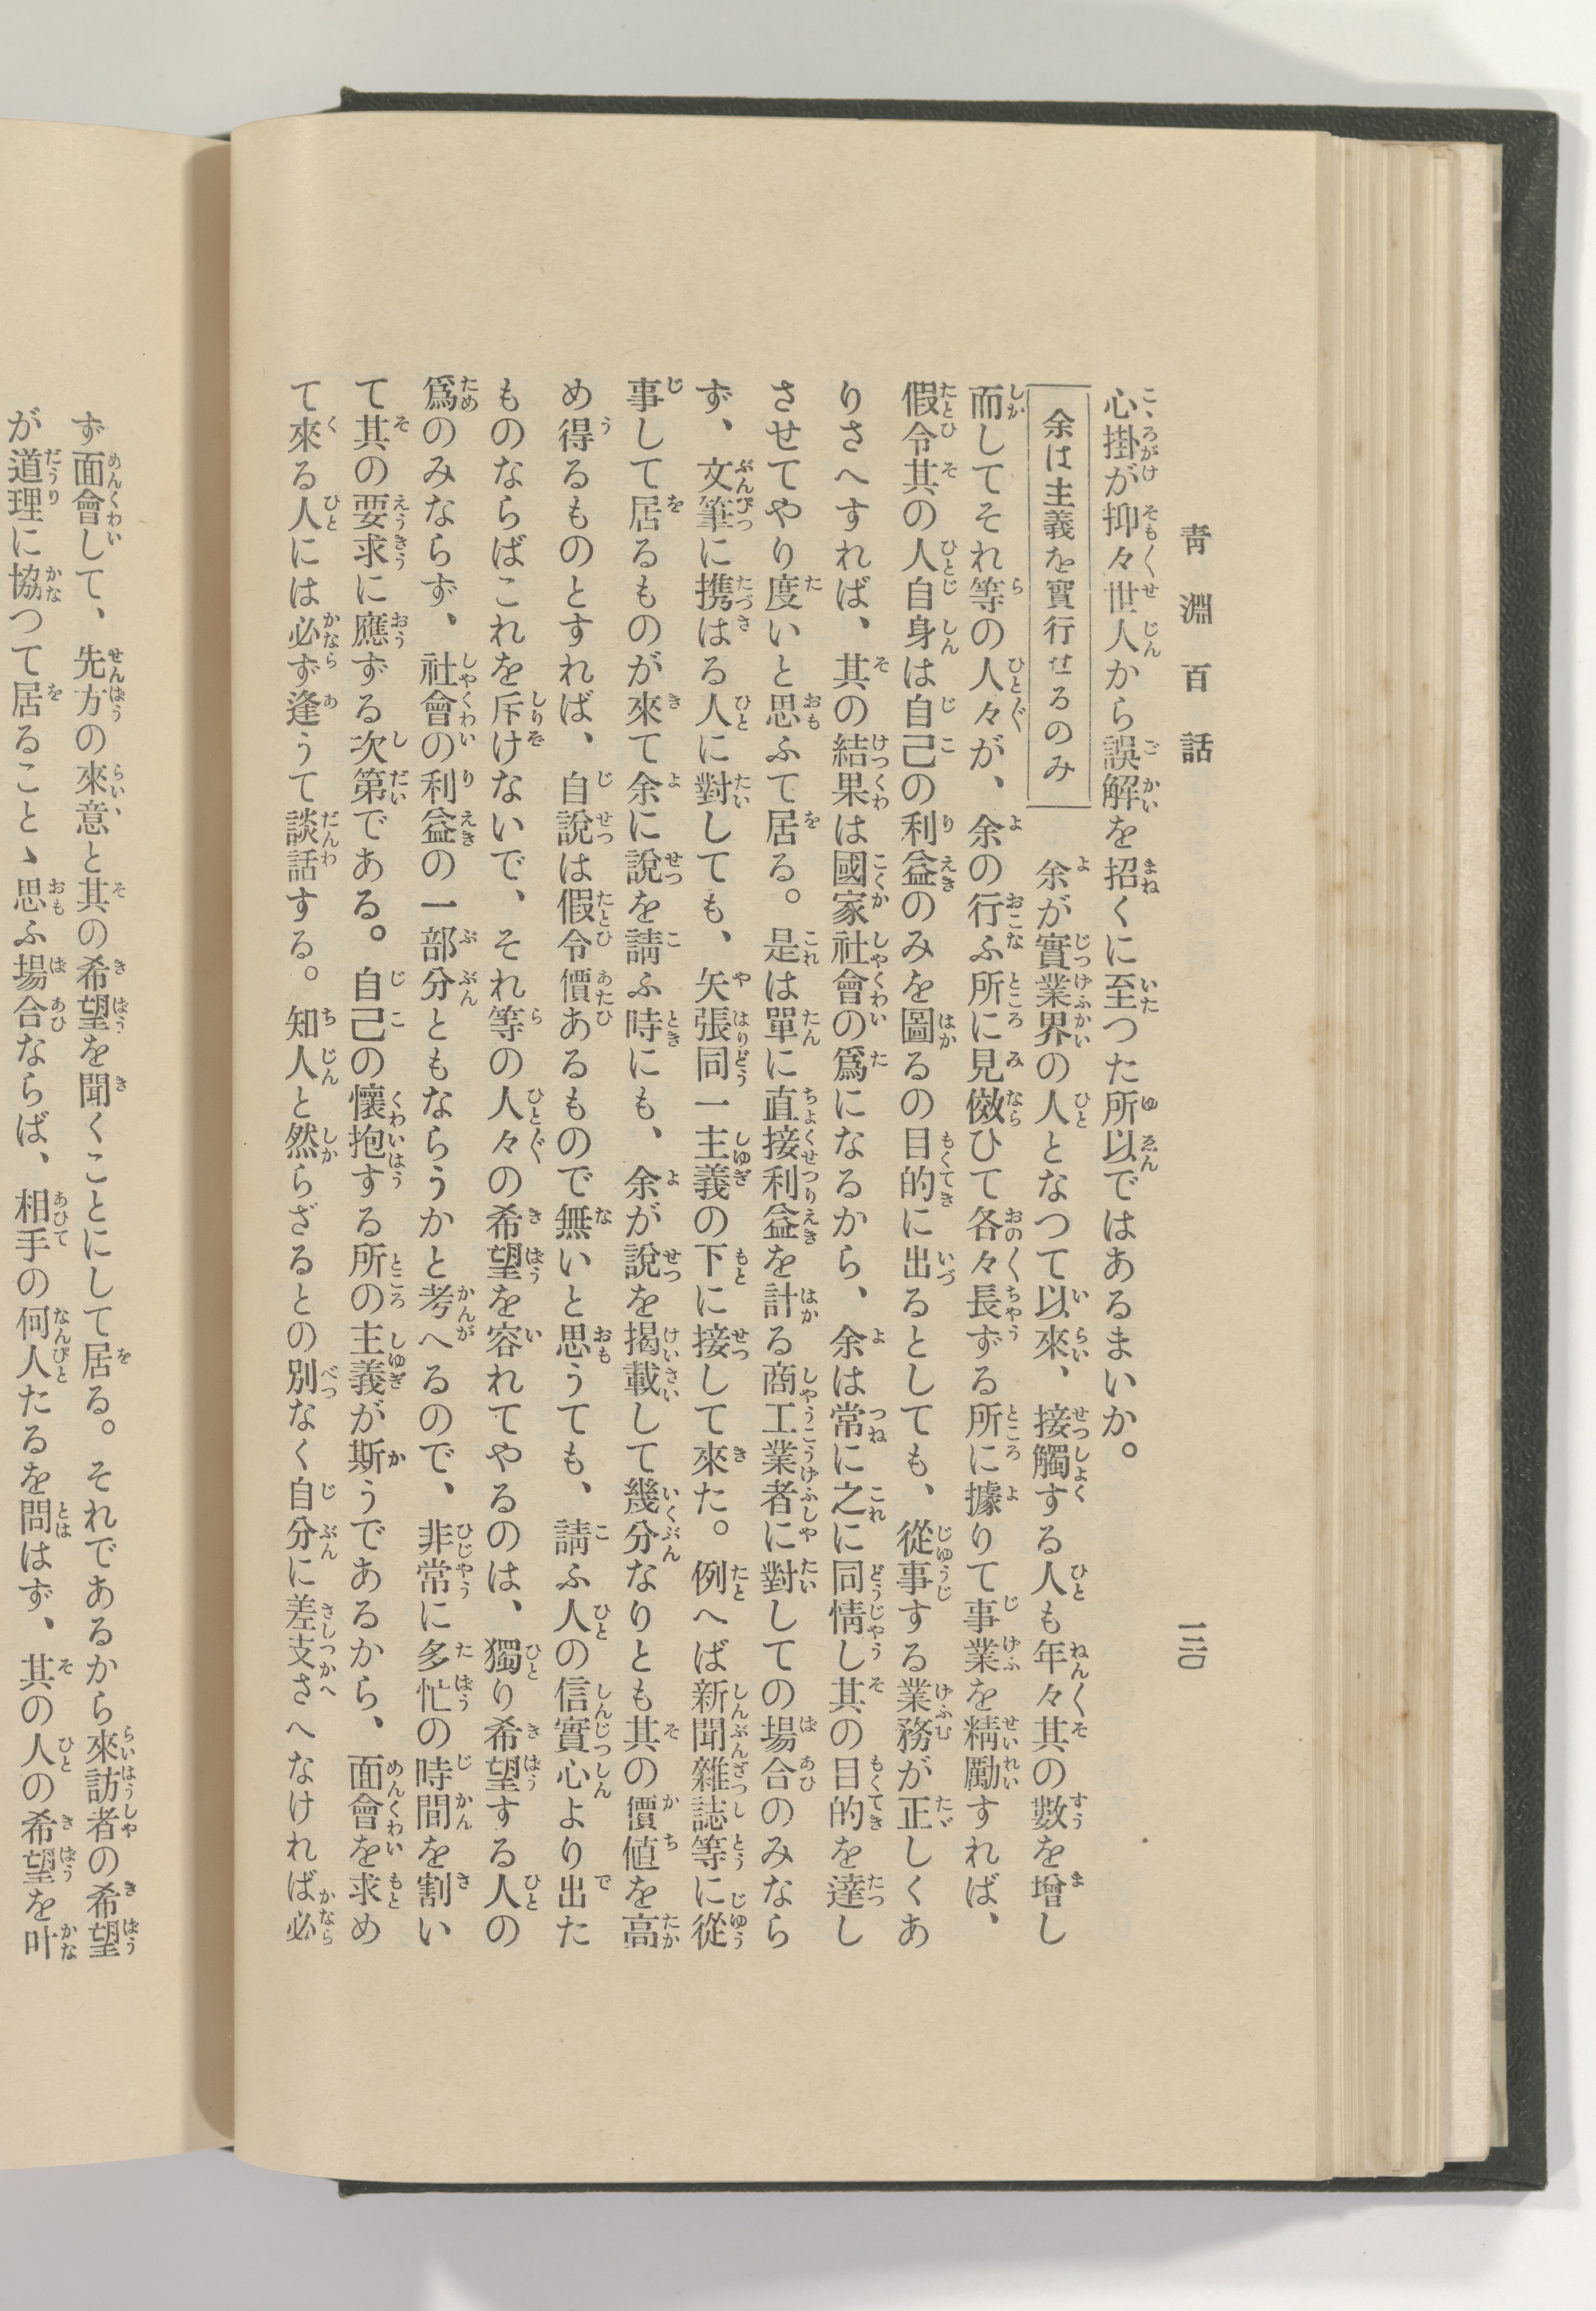 青淵百話
一三〇
心掛が抑々世人から誤解を招くに至つた所以ではあるまいか。
余は主義を實行せるのみ
余が實業界の人となつて以來、接觸する人も年々其の數を增し
而してそれ等の人々が、余の行ふ所に見傚ひて各々長ずる所に據りて事業を精勵すれば、
假令其の人自身は自己の利益のみを圖るの目的に出るとしても、從事する業務が正しくあ
りさへすれば、其の結果は國家社會の爲になるから、余は常に之に同情し其の目的を達し
させてやり度いと思ふて居る。是は單に直接利益を計る商工業者に對しての場合のみなら
ず、文筆に携はる人に對しても、矢張同一主義の下に接して來た。例へば新聞雜誌等に從
事して居るものが來て余に說を請ふ時にも、余が說を揭載して幾分なりとも其の價値を高
め得るものとすれば、自說は假令價あるもので無いと思うても、請ふ人の信實心より出た
ものならばこれを斥けないで、それ等の人々の希望を容れてやるのは、獨り希望する人の
爲のみならず、社會の利益の一部分ともならうかと考へるので、非常に多忙の時間を割い
て其の要求に應ずる次第である。自己の懷抱する所の主義が斯うであるから、面會を求め
て來る人には必ず逢うて談話する。知人と然らざるとの別なく自分に差支さへなければ必
ず面會して、先方の來意と其の希望を聞くことにして居る。それであるから來訪者の希望
が道理に協つて居ることゝ思ふ場合ならば、相手の何人たるを問はず、其の人の希望を叶